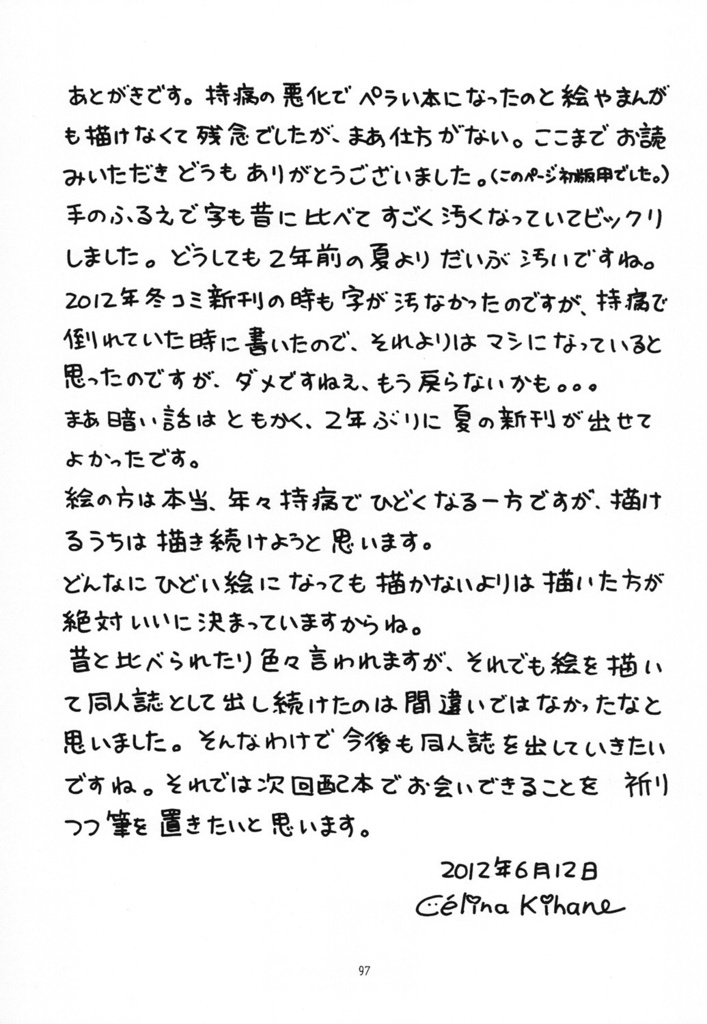 あとがきです。持病の悪化でペラい本になったのと絵やまんが
も描けなくて残念でしたが、まあ仕方がない。ここまでお読
みいただきどうもありがとうございました。(このページ初版用でした。)
手のふるえで字も昔に比べてすごく汚くなっていてビックリ
しました。どうしても2年前の夏よりだいぶ汚いですね。
2012年冬コミ新刊の時も字が汚なかったのですが、持病で
倒れていた時に書いたので、それよりはマシになっていると
思ったのですが、ダメですねえ、もう戻らないかも。。。
まあ暗い話はともかく、2年ぶりに夏の新刊が出せて
よかったです。
絵の方は本当、年々持病でひどくなる一方ですが、描け
るうちは描き続けようと思います。
どんなにひどい絵になっても描かないよりは描いた方が
絶対いいに決まっていますからね。
昔と比べられたり色々言われますが、それでも絵を描い
て同人誌として出し続けたのは間違いではなかったなと
思いました。そんなわけで今後も同人誌を出していきたい
ですね。それでは次回配本でお会いできることを 祈り
つつ筆を置きたいと思います。
2012年6月12日
Célina Kihane
97